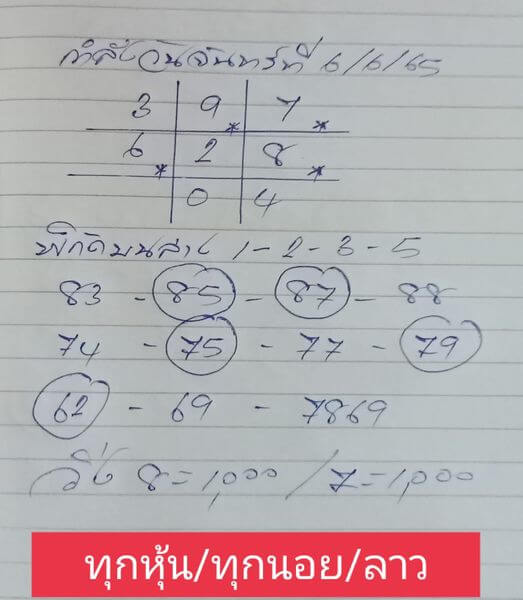 กำลังวันจันทร์ที่ 6/6/65
3 9 7
6 2 8
0 4
พิกัดบนล่าง 1-2-3-5
83 - 85 - 87 - 88
74 - 75 - 77 - 79
62 - 69 - 7869
วิ่ง 8=1,000 / 7=1,000
ทุกหุ้น/ทุกนอย/ลาว